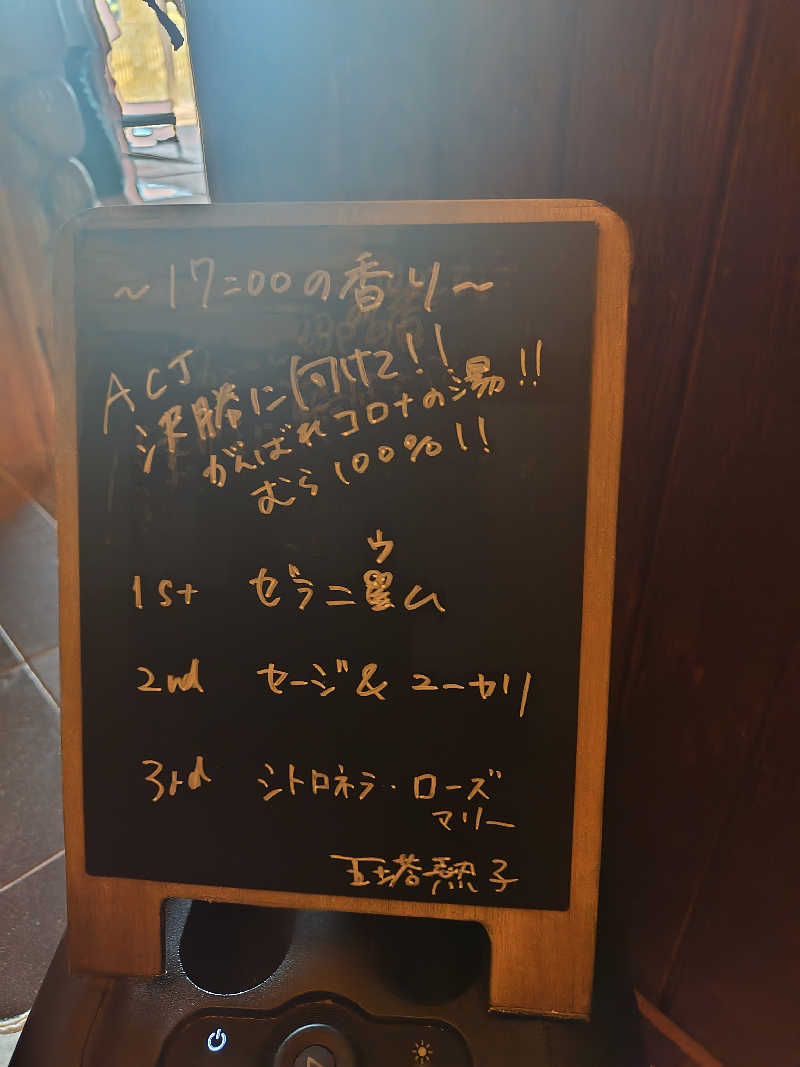 ~17:00の香り~
ACJ
決勝に向けて!!
がんばれコロナの湯!!
むら100%!!
ウ
1st ゼラニウム
2nd セージ&ユーカリ
3rd シトロネラ・ローズ
マリー
玉塔熱子